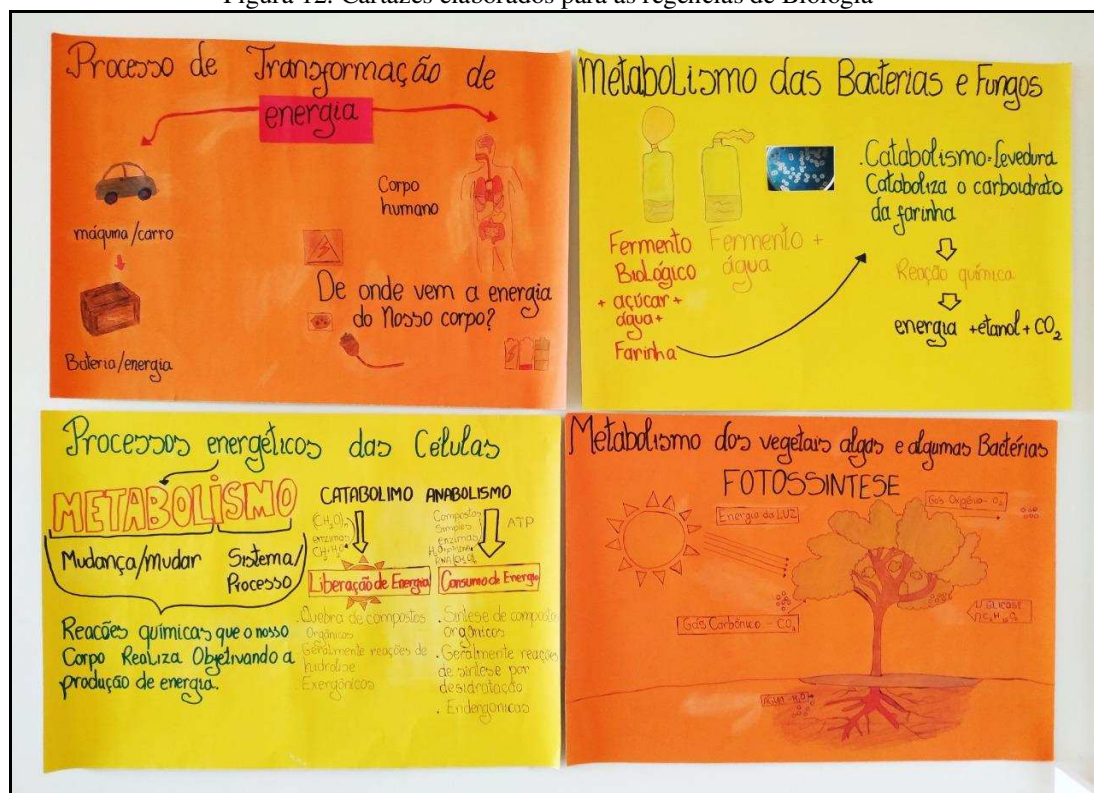 Figura 12: Cartazes elaborados para as regências de Biologia
Processo de Transformação de
energia
máquina/carro
Bateria/energia
Corpo
humano
De onde vem a energia
do Nosso corpo?
Metabolismo das Bacterias e Fungos
Fermento
Biológico
+ açúcar +
água+
Farinha
Fermento +
água
.Catabolismo=Levedura
Cataboliza o carboidrato
da farinha
Reação química
energia +etanol+CO₂
Processos energéticos das Células
METABOLISMO
Mudança/mudar
Sistema/
Processo
Reacões químicas que o nosso
Corpo Realiza Objetivando a
produção de energia.
CATABOLIMO
enzimas
Liberação de Energia
.Quebra de compostos
Orgânicos
.Geralmente reações de
hidrolise
.Exergônicos
ANABOLISMO
Compostos
Simples
enzimas
ATP
Consumo de Energia
.Sintese de compostos
orgânicos
.Geralmente reações
de sintese por
desidratação
. Endergonicas
Metabolismo dos vegetais algas e algumas Bactérias
FOTOSSINTESE
Energia da LUZ
Gás Oxigênio - O₂
Gás Carbônico - CO₂
GLICOSE